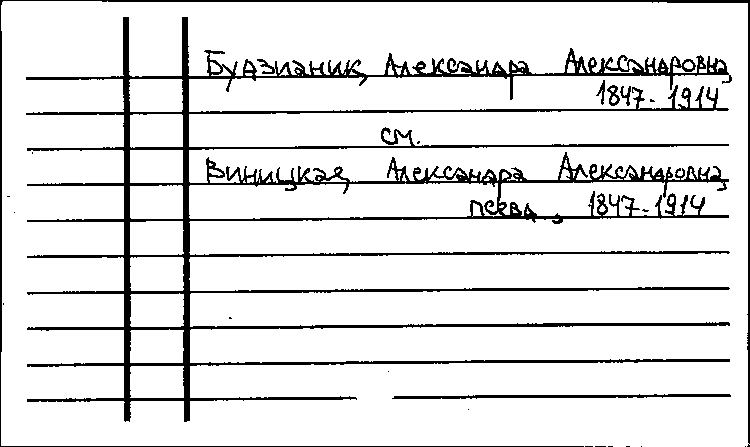 Будзианик, Александра Александровна,
1847-1914
см.
Виницкая, Александра Александровна,
псевд., 1847-1914